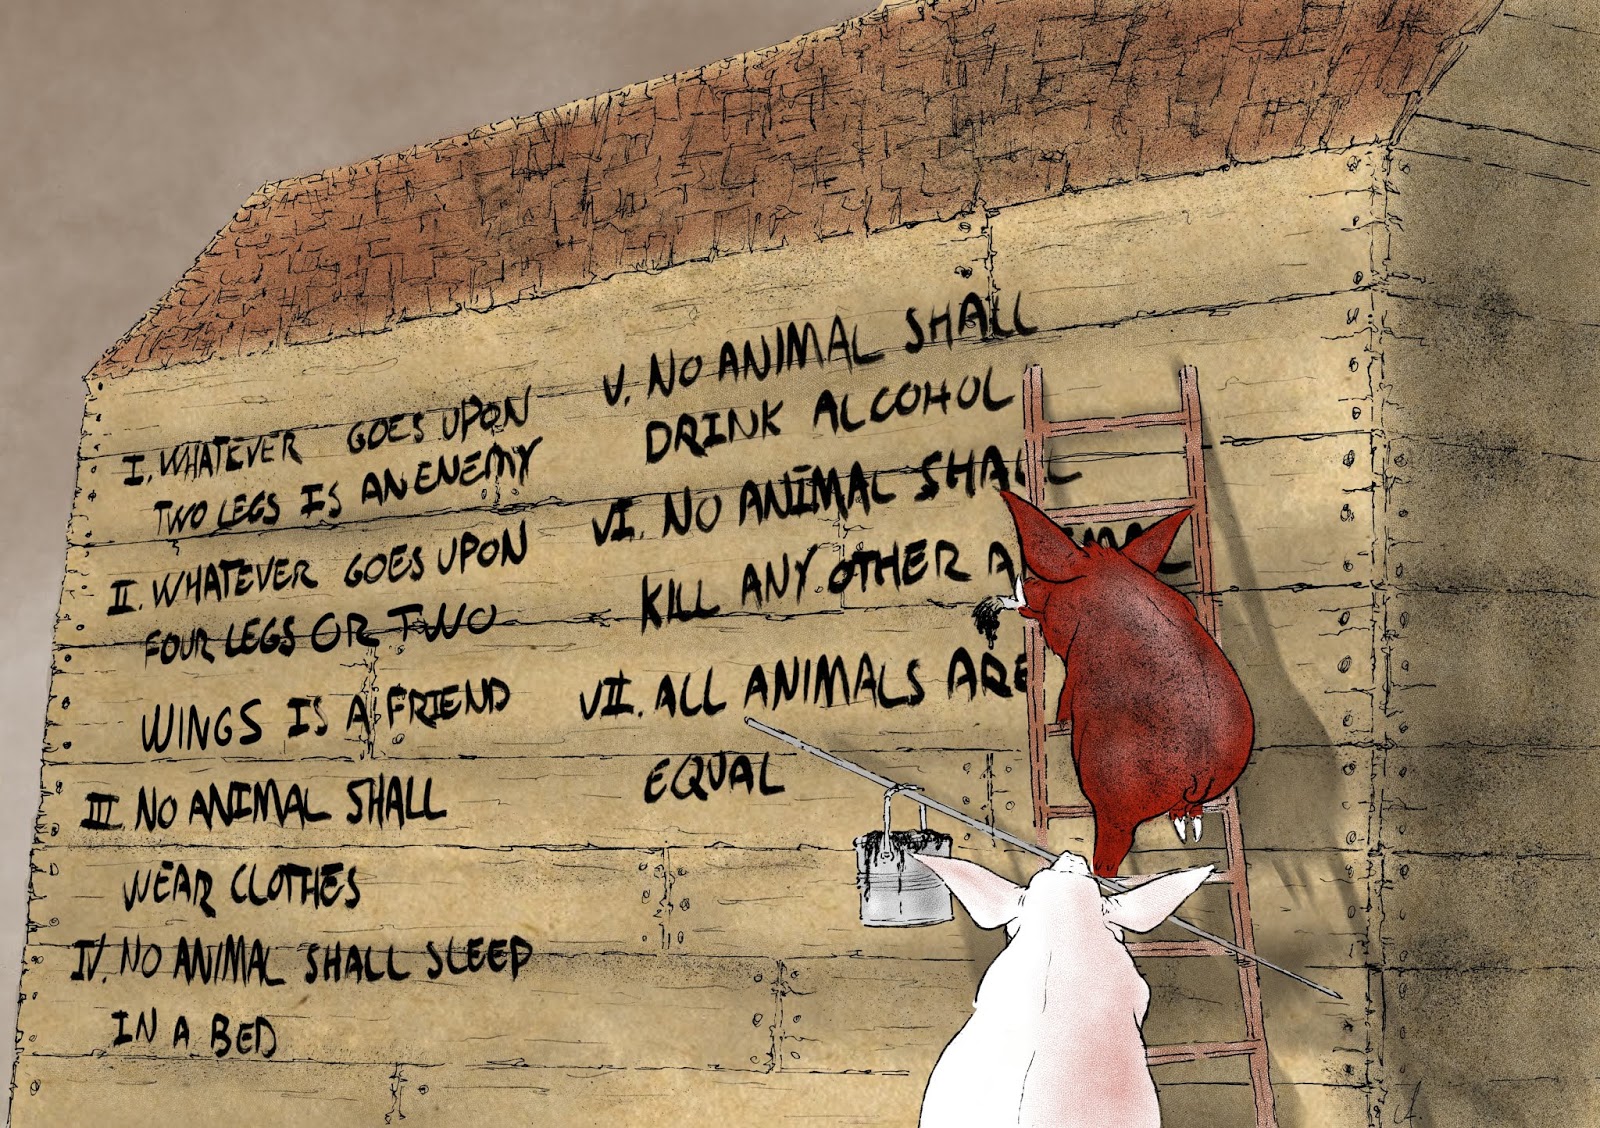 I. WHATEVER GOES UPON
TWO LEGS IS AN ENEMY
II. WHATEVER GOES UPON
FOUR LEGS OR TWO
WINGS IS A FRIEND
III. NO ANIMAL SHALL
WEAR CLOTHES
IV. NO ANIMAL SHALL SLEEP
IN A BED
V. NO ANIMAL SHALL
DRINK ALCOHOL
VI. NO ANIMAL SHALL
KILL ANY OTHER ANIMAL
VII. ALL ANIMALS ARE
EQUAL